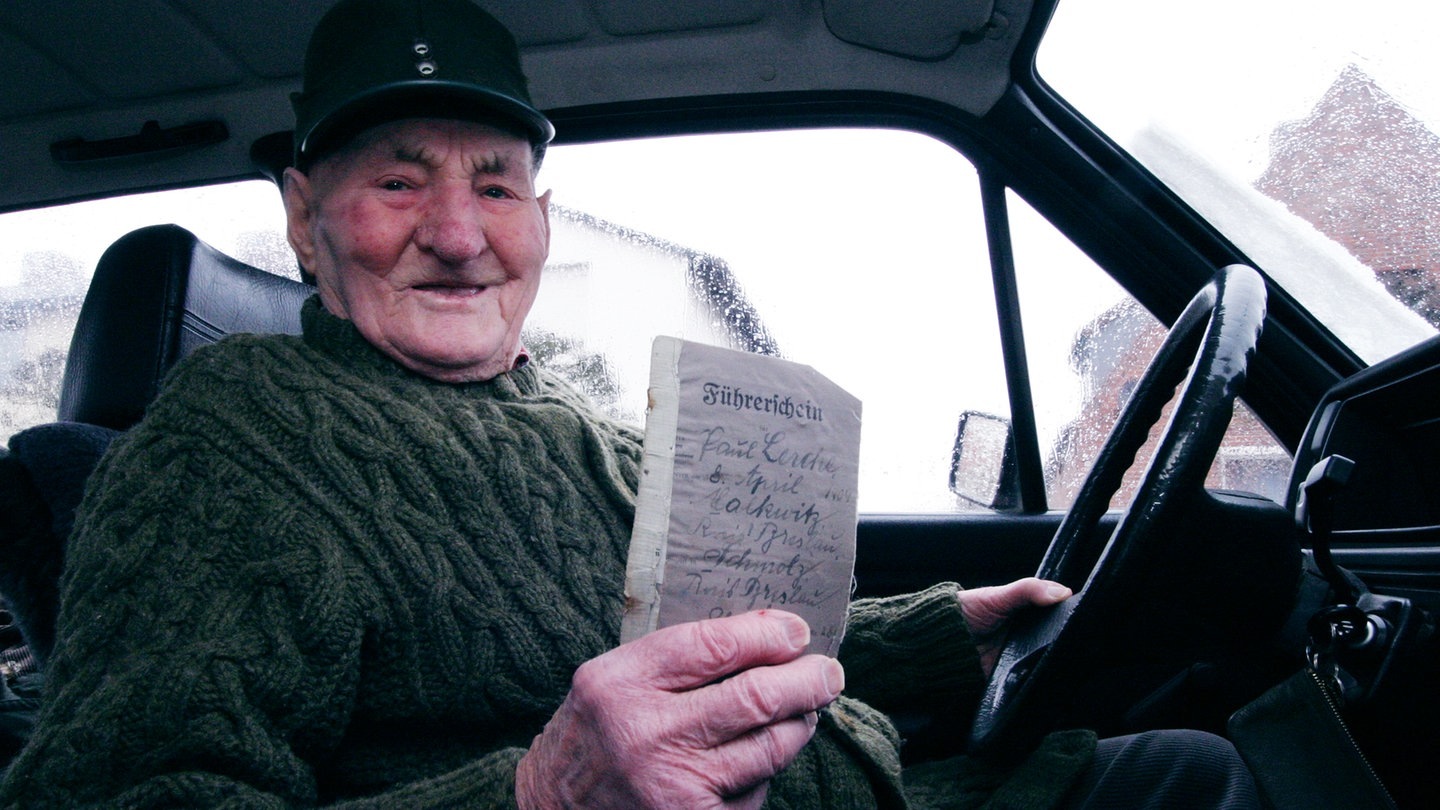 Führerschein
Paul Lerche,
8. April
Kalkwitz,
Kreis Breslau,
Schmolz,
Kreis Breslau,